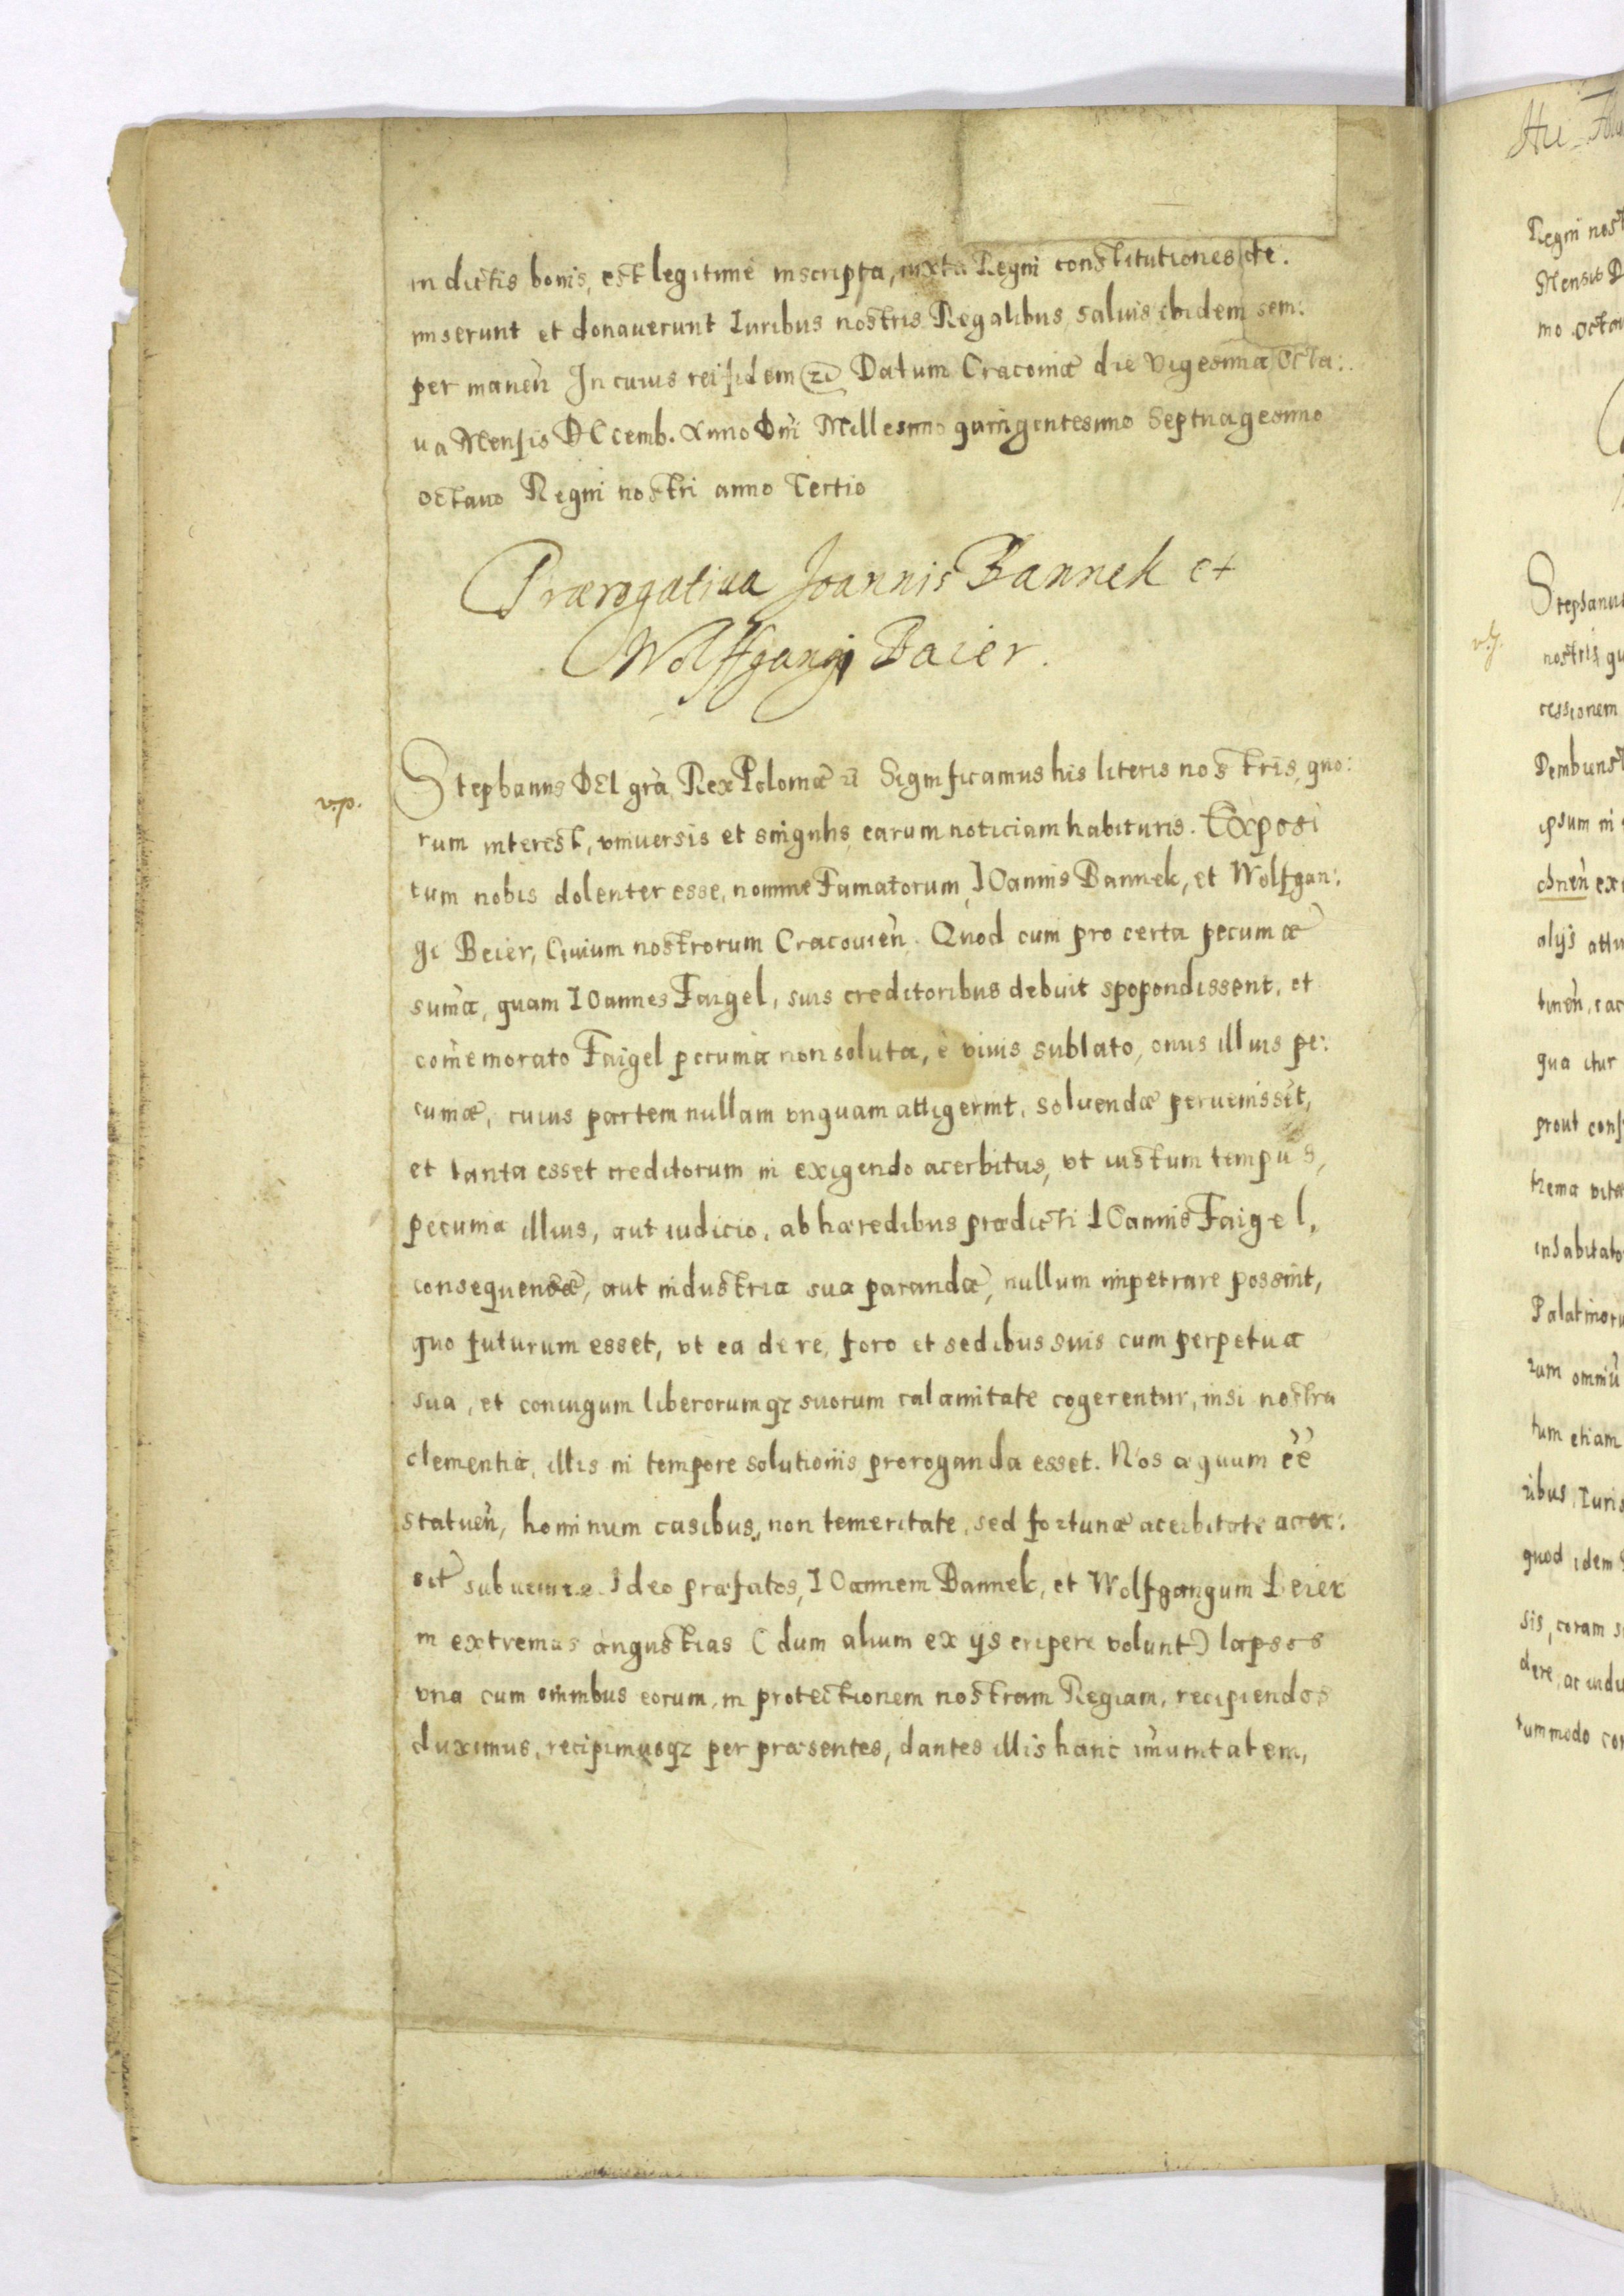 in dictis bonis, est legitime inscripta, iuxta Regni constitutiones de:
miserunt et donauerunt Iuribus nostris Regalibus, saluis ibidem sem:
per manen̄ In cuius rei fidem Datum Cracoviæ die vigesima octa:
ua Mensis DEcemb. Anno Dn̄i Millesimo quingentesimo Septuagesimo
octauo Regni nostri anno Tertio
Prærogatiua Joannis Bannek et
Wolffgangi Baier.
v.p.
Stephanus DEI gr̄a Rex Poloniæ Significamus his literis nostris, quo:
rum interest, vniuersis et singulis earum noticiam habituris. Exposi
tum nobis dolenter esse, nomine Famatorum IOannis Bannek, et Wolfgan:
gi Beier, Ciuium nostrorum Cracouien̄. Quod cum pro certa pecuniæ
sum̄a, quam IOannes Faigel, suis creditoribus debuit spopondissent, et
com̄emorato Faigel pecunia non soluta, è viuis sublato, onus illius pe:
cuniæ, cuius partem nullam vnquam attigerint, soluendæ peruenisset,
et tanta esset creditorum in exigendo acerbitas, vt iustum tempus,
pecunia illius, aut iudicio, ab hæredibus prædicti IOannis Faigel,
consequendæ, aut industria sua parandæ, nullum impetrare possint,
quo futurum esset, vt ea de re, foro et sedibus suis cum perpetua
sua, et coniugum liberorumqz suorum calamitate cogerentur, nisi nostra
clementia, illis in tempore solutionis proroganda esset. Nos æquum ēē
statuen̄, hominum casibus, non temeritate, sed fortunæ acerbitate accer:
sit̄ subuenire. Ideo præfatos, IOannem Bannek, et Wolfgangum Beier
in extremas angustias (dum alium ex ijs eripere volunt) lapsos
vna cum omnibus eorum, in protectionem nostram Regiam, recipiendos
duximus, recipimusqz per præsentes, dantes illis hanc im̄unitatem,